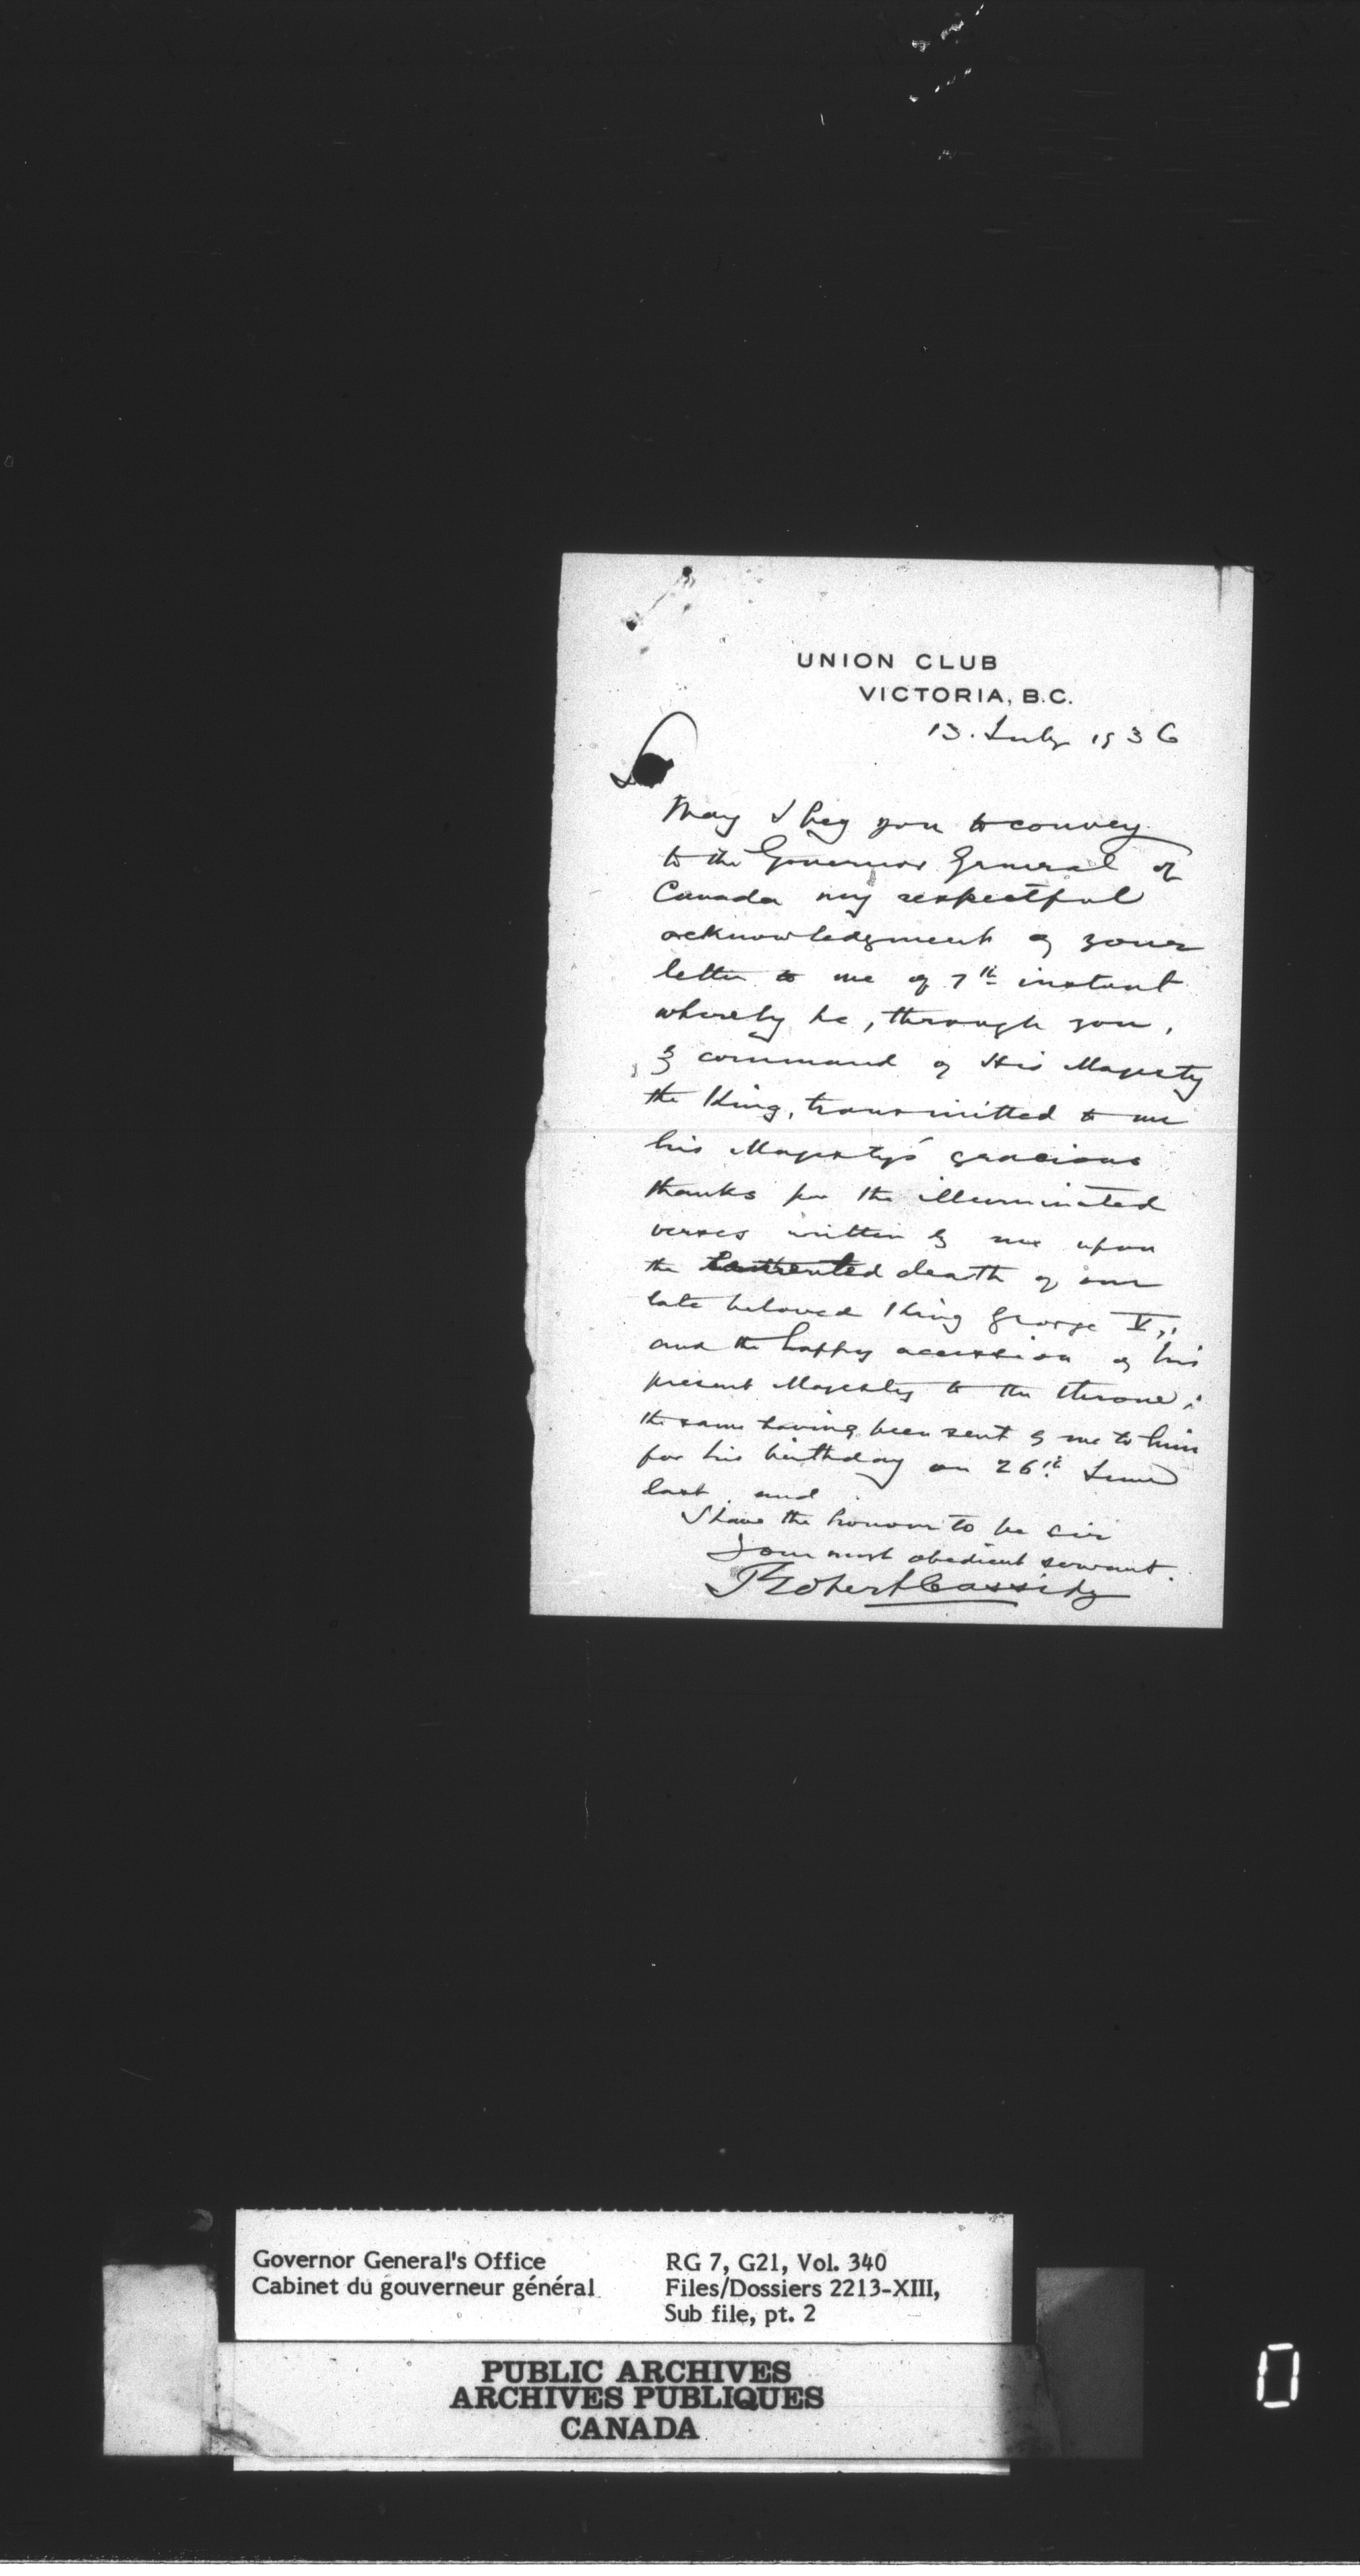 UNION CLUB
VICTORIA, B.C.
13. July 1936
May I beg you to convey
to the Governor General of
Canada my respectful
acknowledgment of your
letter to me of 7th instant
whereby he, through you,
by command of His Majesty
the King, transmitted to me
his Majesty's gracious
thanks for the illuminated
verses written by me upon
the lamented death of our
late beloved King George V,
and the happy accession of his
present Majesty to the throne;
the same having been sent by me to him
for his birthday on 26th June
last and
I have the honour to be sir
Your most obedient servant.
Robert Cassidy
Governor General's Office
Cabinet du gouverneur général
RG 7, G21, Vol. 340
Files/Dossiers 2213-XIII,
Sub file, pt. 2
PUBLIC ARCHIVES
ARCHIVES PUBLIQUES
CANADA
0